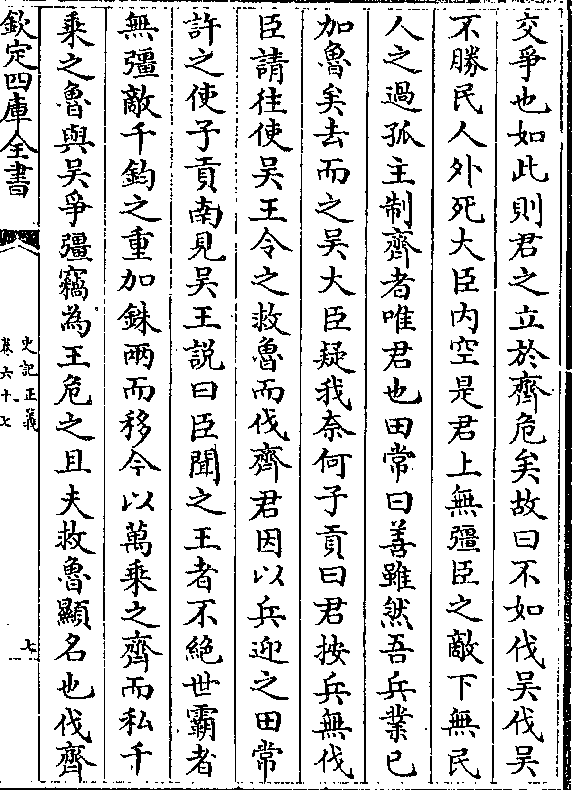 交爭也如此則君之立於齊危矣故曰不如伐吳伐吳
不勝民人外死大臣内空是君上無彊臣之敵下無民
人之過孤主制齊者唯君也田常曰善雖然吾兵業已
加魯矣去而之吳大臣疑我奈何子貢曰君按兵無伐
臣請往使吳王令之救魯而伐齊君因以兵迎之田常
許之使子貢南見吳王説曰臣聞之王者不絶世霸者
無彊敵千鈞之重加銖兩而移今以萬乘之齊而私千
乘之魯與吳爭彊竊為王危之且夫救魯顯名也伐齊
欽定四庫全書
史記正義
卷六十七
七